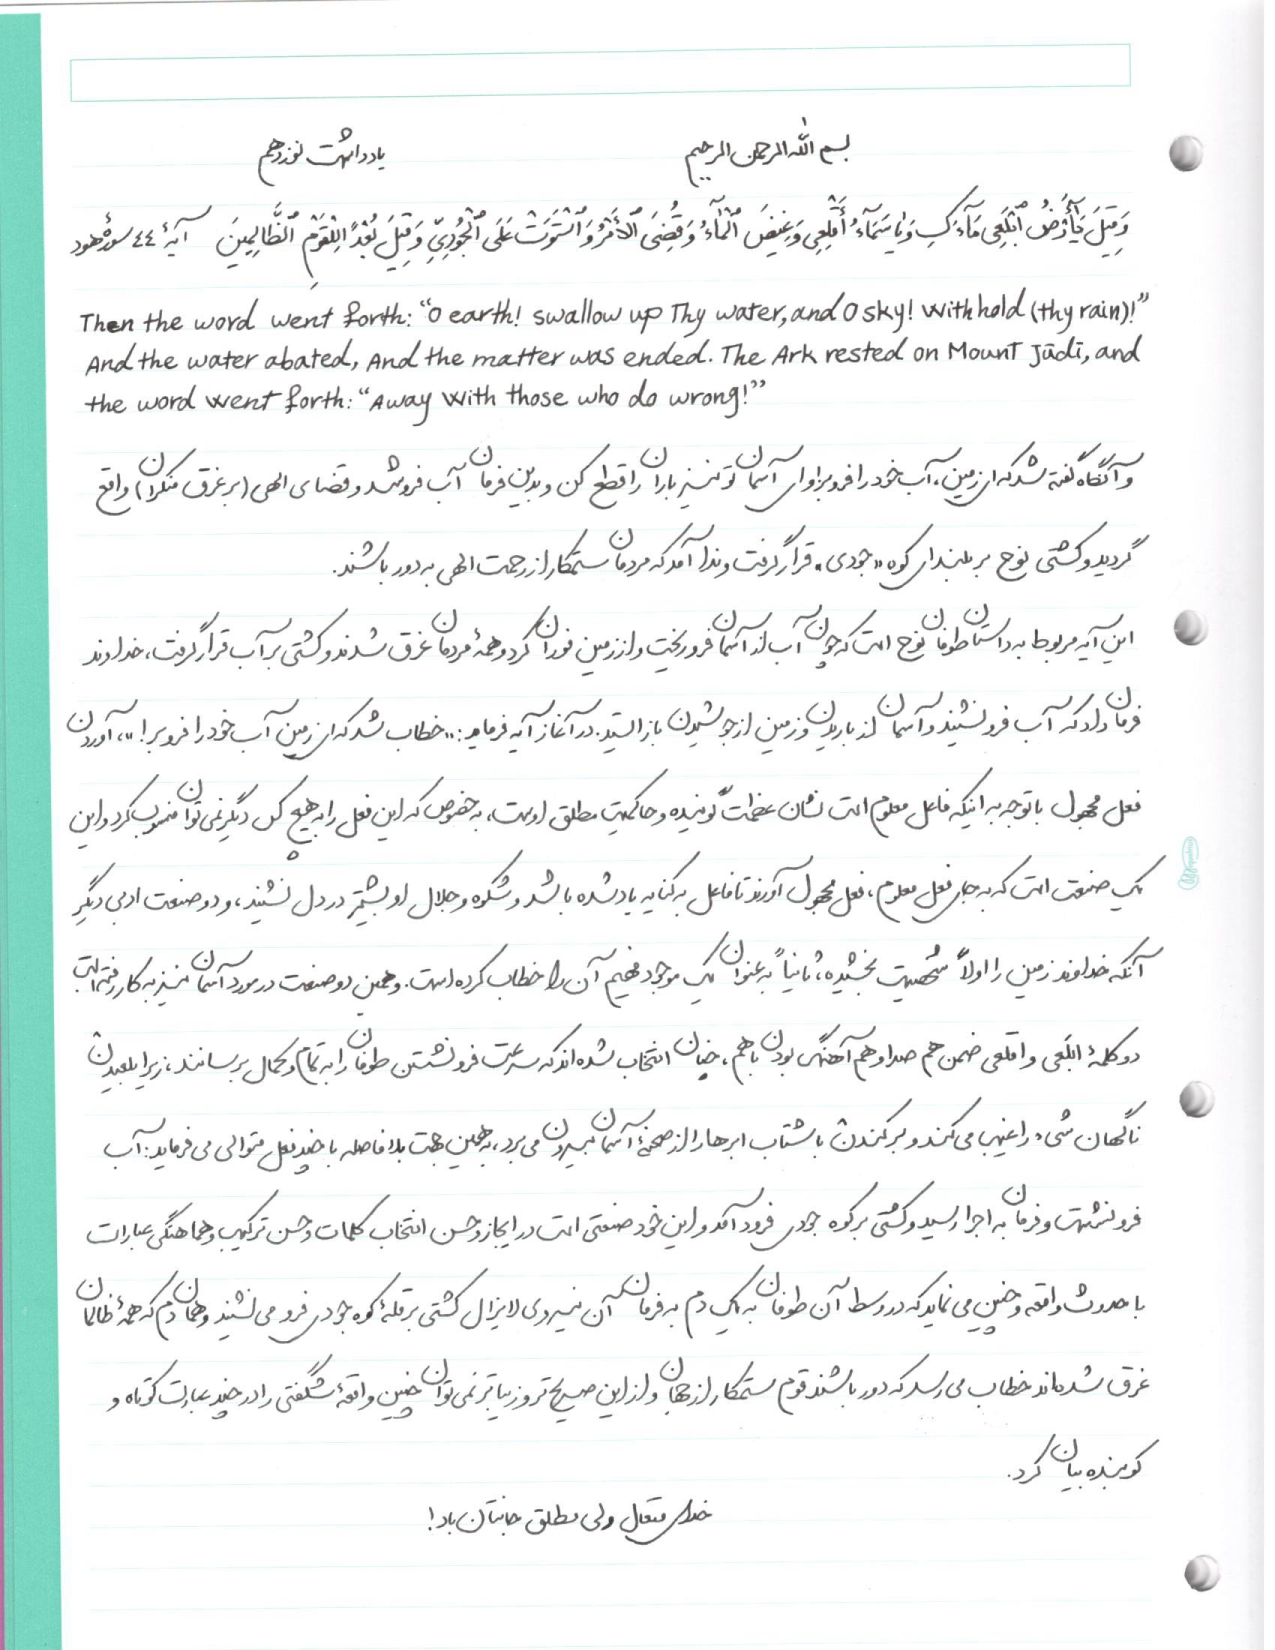 بسم الله الرحمن الرحیم
یادداشت نوزدهم
وَقِيلَ يَا أَرْضُ ٱبْلَعِي مَآءَكِ وَيَا سَمَآءُ أَقْلِعِي وَغِيضَ ٱلْمَآءُ وَقُضِيَ ٱلْأَمْرُ وَٱسْتَوَتْ عَلَى ٱلْجُودِيِّ وَقِيلَ بُعْدًا لِلْقَوْمِ ٱلظَّالِمِينَ آیهٔ ٤٤ سورهٔ هود
Then the word went forth: “O earth! swallow up Thy water, and O sky! Withhold (thy rain)!”
And the water abated, And the matter was ended. The Ark rested on Mount Jūdī, and
the word went forth: “Away with those who do wrong!”
و آنگاه گفته شد که ای زمین، آب خود را فرو بر و ای آسمان تو نیز باران را قطع کن و بدین فرمان آب فرو شد و قضای الهی (بر غرق منکران) واقع
گردید و کشتی نوح بر بلندای کوه «جودی» قرار گرفت و ندا آمد که مردمان ستمکار از رحمت الهی به دور باشند.
این آیه مربوط به داستان طوفان نوح است که چون آب از آسمان فرو ریخت و از زمین فوران کرد و همهٔ مردمان غرق شدند و کشتی بر آب قرار گرفت، خداوند
فرمان داد که آب فرو نشیند و آسمان از باریدن و زمین از جوشیدن باز ایستد. در آغاز آیه فرماید: «خطاب شد که ای زمین آب خود را فرو بر!»، آوردن
فعل مجهول با توجه به اینکه فاعل معلوم است نشان عظمت گوینده و حاکمیت مطلق اوست، به خصوص که این فعل را به هیچ کس دیگر نمی توان منسوب کرد و این
یک صنعت است که به جای فعل معلوم، فعل مجهول آورند تا فاعل به کنایه یاد شده باشد و شکوه و جلال او بیشتر در دل نشیند، و دو صنعت ادبی دیگر
آنکه خداوند زمین را اولاً شخصیت بخشیده، ثانیاً به عنوان یک موجود فهیم آن را خطاب کرده است. و همین دو صنعت در مورد آسمان نیز به کار رفته است
دو کلمهٔ ابلعی و اقلعی ضمن هم صدا و هم آهنگ بودن با هم، چنان انتخاب شده اند که سرعت فرو نشستن طوفان را به تمام و کمال برسانند، زیرا بلعیدن
ناگهان شیء را غیب می کند و بر کندن با شتاب ابرها را از صحنهٔ آسمان بیرون می برد، به همین جهت بلافاصله با چند فعل متوالی می فرماید: آب
فرو نشست و فرمان به اجرا رسید و کشتی بر کوه جودی فرود آمد و این خود صنعتی است در ایجاز و حسن انتخاب کلمات و حسن ترکیب و هماهنگی عبارات
با حدوث واقعه و چنین می نماید که در وسط آن طوفان به یک دم به فرمان آن نیروی لایزال کشتی بر قلهٔ کوه جودی فرو می نشیند و همان دم که همهٔ ظالمان
غرق شده اند خطاب می رسد که دور باشند قوم ستمکار از جهان و از این صریح تر و زیباتر نمی توان چنین واقعهٔ شگفتی را در چند عبارت کوتاه و
کوبنده بیان کرد.
خدای متعال ولی مطلق جانتان باد!